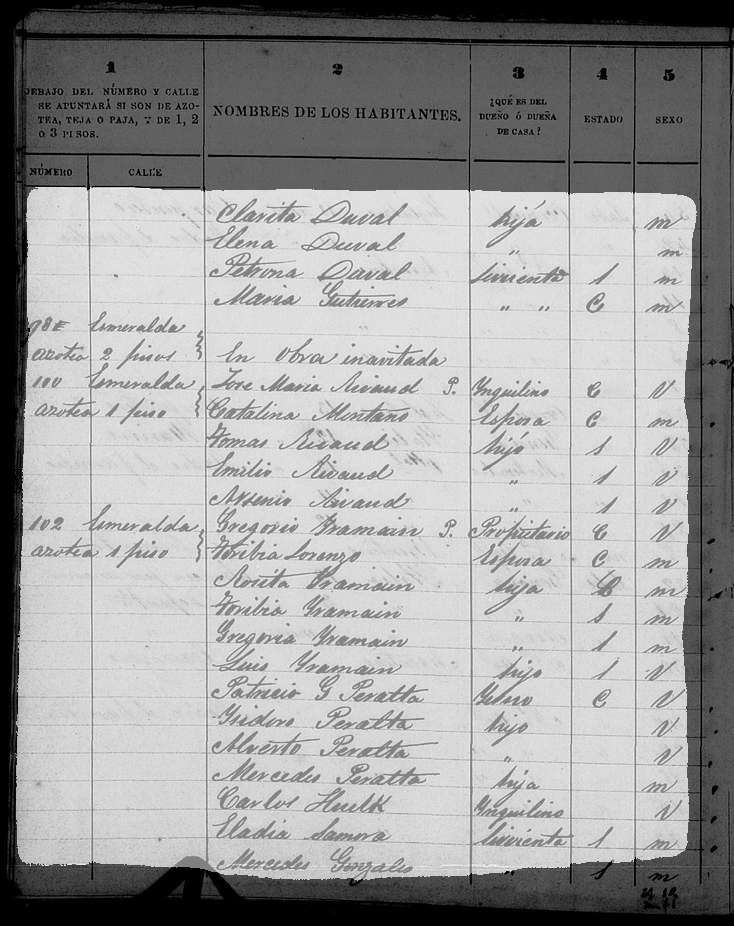 1 2 3 4 5
DEBAJO DEL NÚMERO Y CALLE
SE APUNTARÁ SI SON DE AZO-
TEA, TEJA O PAJA, Y DE 1, 2
O 3 PISOS.
NOMBRES DE LOS HABITANTES.
¿QUÉ ES DEL
DUEÑO Ó DUEÑA
DE CASA?
ESTADO
SEXO
NÚMERO CALLE
Clarita Duval hija m
Elena Duval " m
Petrona Duval Sirvienta S m
Maria Gutierres " " C m
98E Esmeralda "
azotea 2 pisos En obra inavitada
100 Esmeralda Jose Maria Rivaud P. Ynquilino C V
azotea 1 piso Catalina Montano Esposa C m
Tomas Rivaud hijo S V
Emilio Rivaud " S V
Arsenio Rivaud " S V
102 Esmeralda Gregorio Yramain P. Propietario C V
azotea 1 piso Toribia Lorenzo Esposa C m
Rosita Yramain hija m
Toribia Yramain " S m
Gregoria Yramain " S m
Luis Yramain hijo S V
Patricio G Peralta Yerno C V
Ysidoro Peralta hijo V
Alverto Peralta " V
Mercedes Peralta hija m
Carlos Huelk Ynquilino V
Eladia Samora Sirvienta S m
Mercedes Gonzales " S m